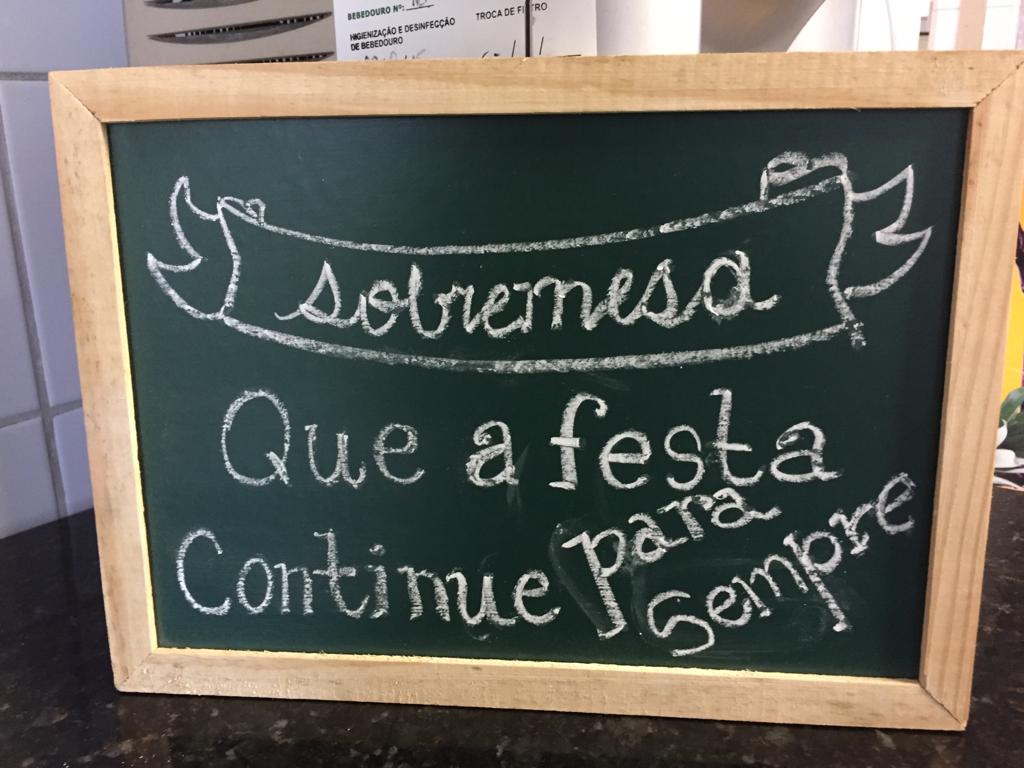 BEBEDOURO Nº:
HIGIENIZAÇÃO E DESINFECÇÃO
DE BEBEDOURO
TROCA DE FILTRO
sobremesa
Que a festa
Continue para
sempre